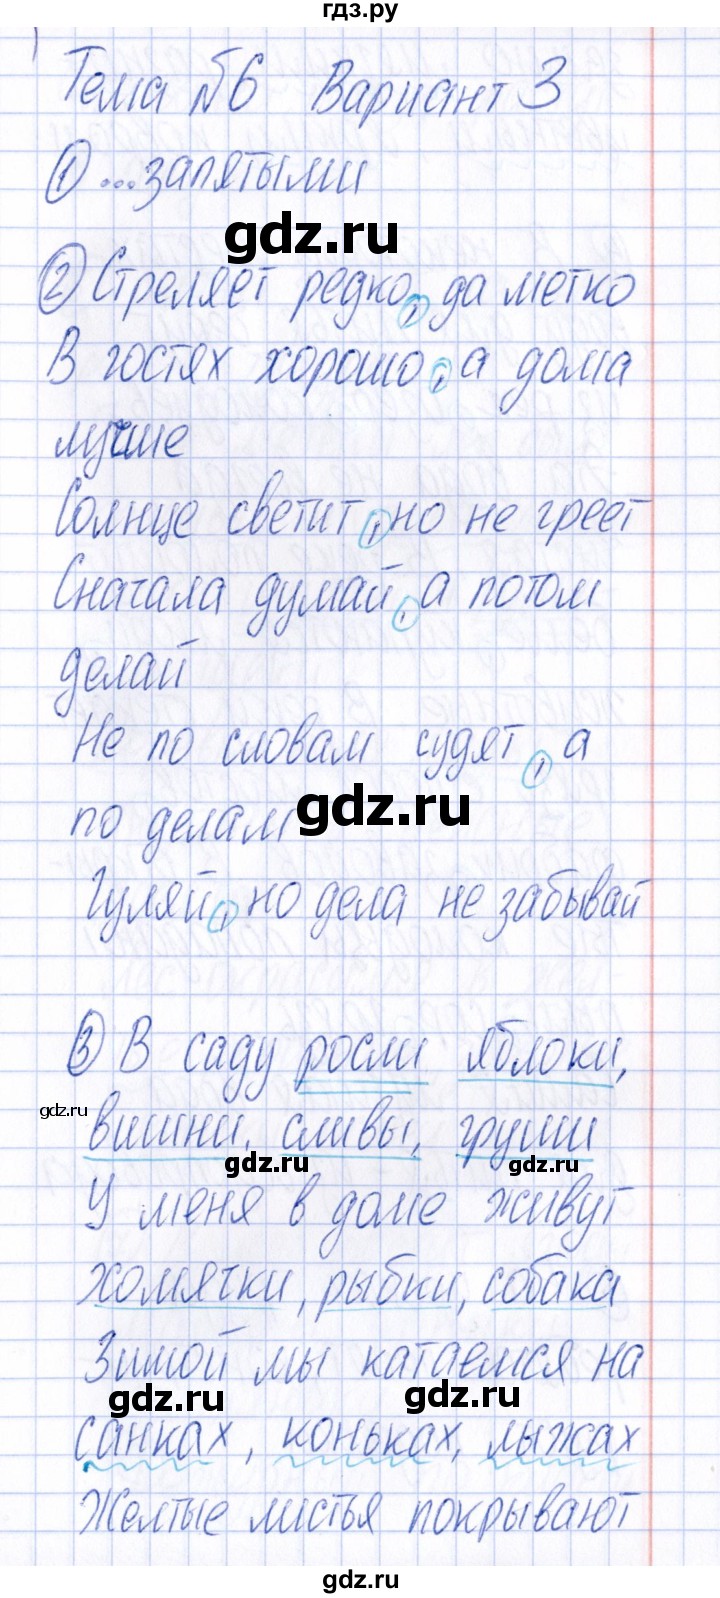 гдз.ру
Тема №6 Вариант 3
① ...запятыми
gdz.ru
② Стреляет редко, да метко
В гостях хорошо, а дома
лучше
Солнце светит, но не греет
Сначала думай, а потом
делай
Не по словам судят, а
gdz.ru
по делам
Гуляй, но дела не забывай
③ В саду росли яблоки,
gdz.ru
вишни, сливы, груши
gdz.ru gdz.ru
У меня в доме живут
хомячки, рыбки, собака
Зимой мы катаемся на
gdz.ru gdz.ru
санках, коньках, лыжах
Желтые листья покрывают
gdz.ru gdz.ru